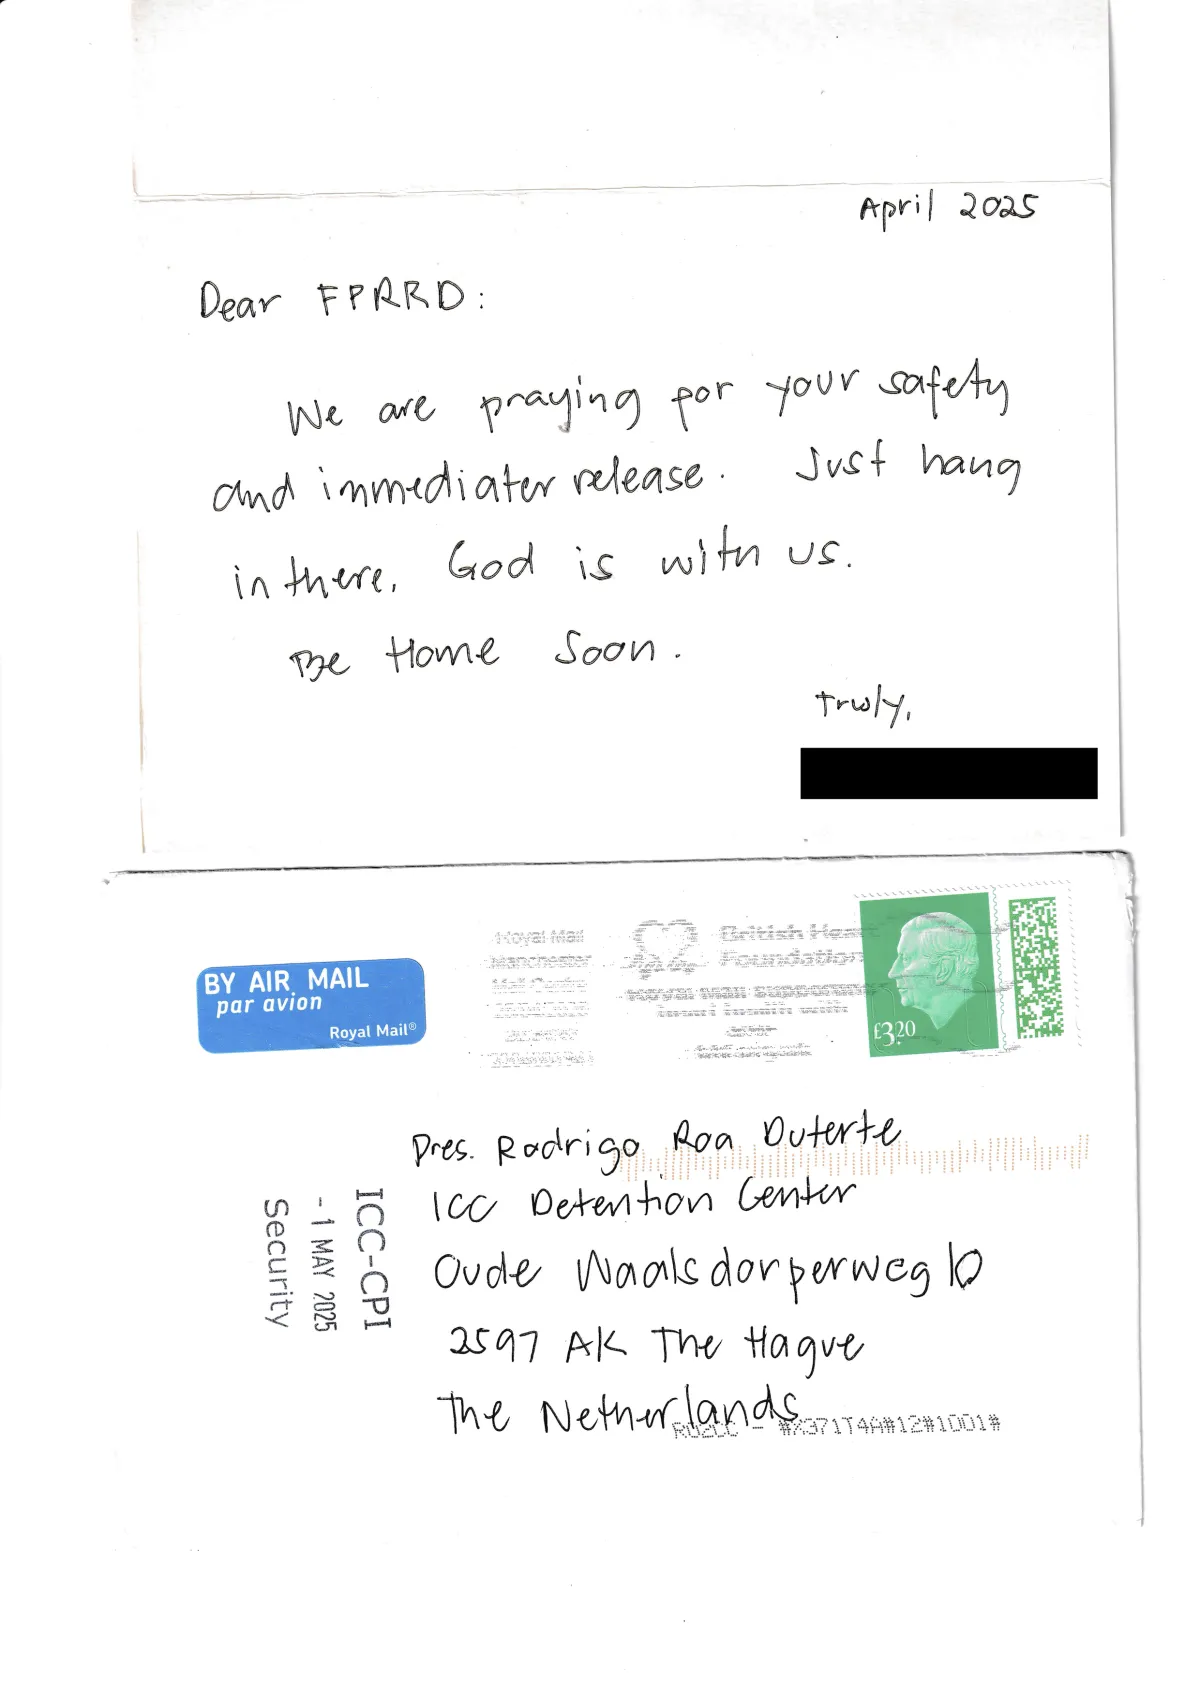 April 2025
Dear FPRRD:
We are praying for your safety
and immediater release. Just hang
in there, God is with us.
Be Home Soon.
Truly,
BY AIR MAIL
par avion
Royal Mail®
Royal Mail
British Heart
Foundation
£3.20
Pres. Rodrigo Roa Duterte
ICC Detention Center
Oude Waalsdorperweg 10
2597 AK The Hague
The Netherlands
ICC-CPI
- 1 MAY 2025
Security